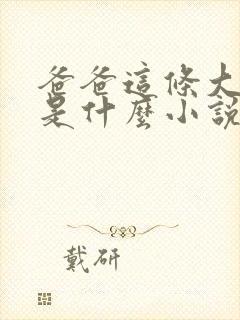 爸爸這條大
是什麼小說
戴研